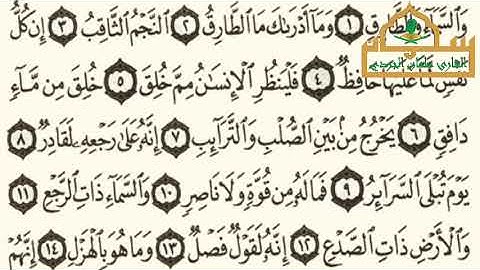 وَالسَّمَآءِ وَالطَّارِقِ ١ وَمَآ أَدۡرَىٰكَ مَا الطَّارِقُ ٢ النَّجۡمُ الثَّاقِبُ ٣ إِن كُلُّ
نَفۡسٖ لَّمَّا عَلَيۡهَا حَافِظٞ ٤ فَلۡيَنظُرِ الۡإِنسَٰنُ مِمَّ خُلِقَ ٥ خُلِقَ مِن مَّآءٖ
دَافِقٖ ٦ يَخۡرُجُ مِنۢ بَيۡنِ الصُّلۡبِ وَالتَّرَآئِبِ ٧ إِنَّهُۥ عَلَىٰ رَجۡعِهِۦ لَقَادِرٞ ٨
يَوۡمَ تُبۡلَى السَّرَآئِرُ ٩ فَمَا لَهُۥ مِن قُوَّةٖ وَلَا نَاصِرٖ ١٠ وَالسَّمَآءِ ذَاتِ الرَّجۡعِ ١١
وَالۡأَرۡضِ ذَاتِ الصَّدۡعِ ١٢ إِنَّهُۥ لَقَوۡلٞ فَصۡلٞ ١٣ وَمَا هُوَ بِالۡهَزۡلِ ١٤ إِنَّهُمۡ